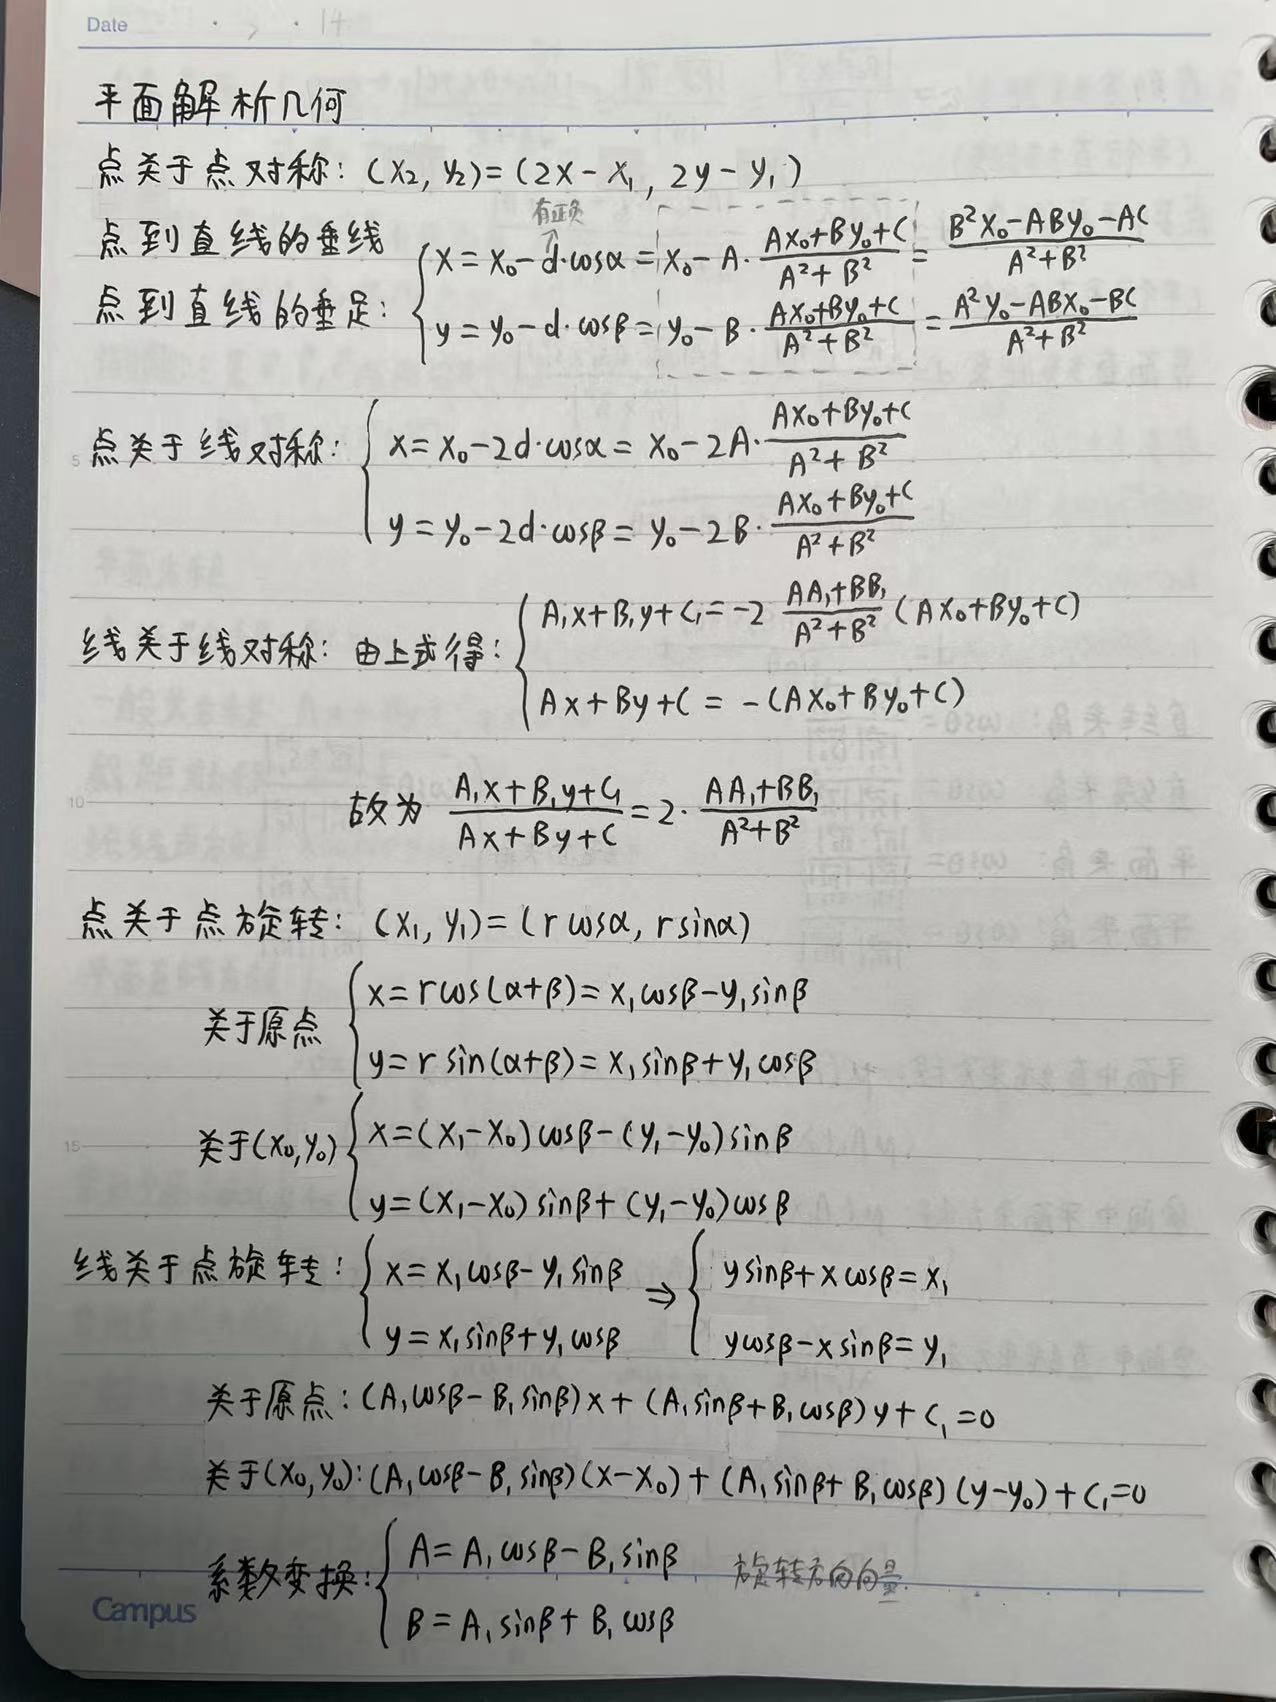 Date · > · 14
平面解析几何
点关于点对称: (x₂, y₂)=(2x-x₁, 2y-y₁)
有正负
点到直线的垂线
点到直线的垂足:
{ x = x₀-d·cosα = x₀-A·(Ax₀+By₀+C)/(A²+B²) = (B²x₀-ABy₀-AC)/(A²+B²)
y = y₀-d·cosβ = y₀-B·(Ax₀+By₀+C)/(A²+B²) = (A²y₀-ABx₀-BC)/(A²+B²)
5
点关于线对称: { x = x₀-2d·cosα = x₀-2A·(Ax₀+By₀+C)/(A²+B²)
y = y₀-2d·cosβ = y₀-2B·(Ax₀+By₀+C)/(A²+B²)
线关于线对称: 由上式得: { A₁x+B₁y+C₁=-2 (AA₁+BB₁)/(A²+B²) (Ax₀+By₀+C)
Ax+By+C = -(Ax₀+By₀+C)
10
故为 (A₁x+B₁y+C₁)/(Ax+By+C) = 2·(AA₁+BB₁)/(A²+B²)
点关于点旋转: (x₁, y₁)=(r cosα, r sinα)
关于原点 { x=rcos(α+β)=x₁cosβ-y₁sinβ
y=r sin(α+β)=x₁sinβ+y₁cosβ
15
关于(x₀,y₀) { x=(x₁-x₀)cosβ-(y₁-y₀)sinβ
y=(x₁-x₀)sinβ+(y₁-y₀)cosβ
线关于点旋转: { x=x₁cosβ-y₁sinβ ⇒ { ysinβ+xcosβ=x₁
y=x₁sinβ+y₁cosβ ycosβ-xsinβ=y₁
关于原点: (A₁cosβ-B₁sinβ)x+(A₁sinβ+B₁cosβ)y+C₁=0
关于(x₀,y₀): (A₁cosβ-B₁sinβ)(x-x₀)+(A₁sinβ+B₁cosβ)(y-y₀)+C₁=0
系数变换: { A=A₁cosβ-B₁sinβ 旋转方向向量
B=A₁sinβ+B₁cosβ
Campus